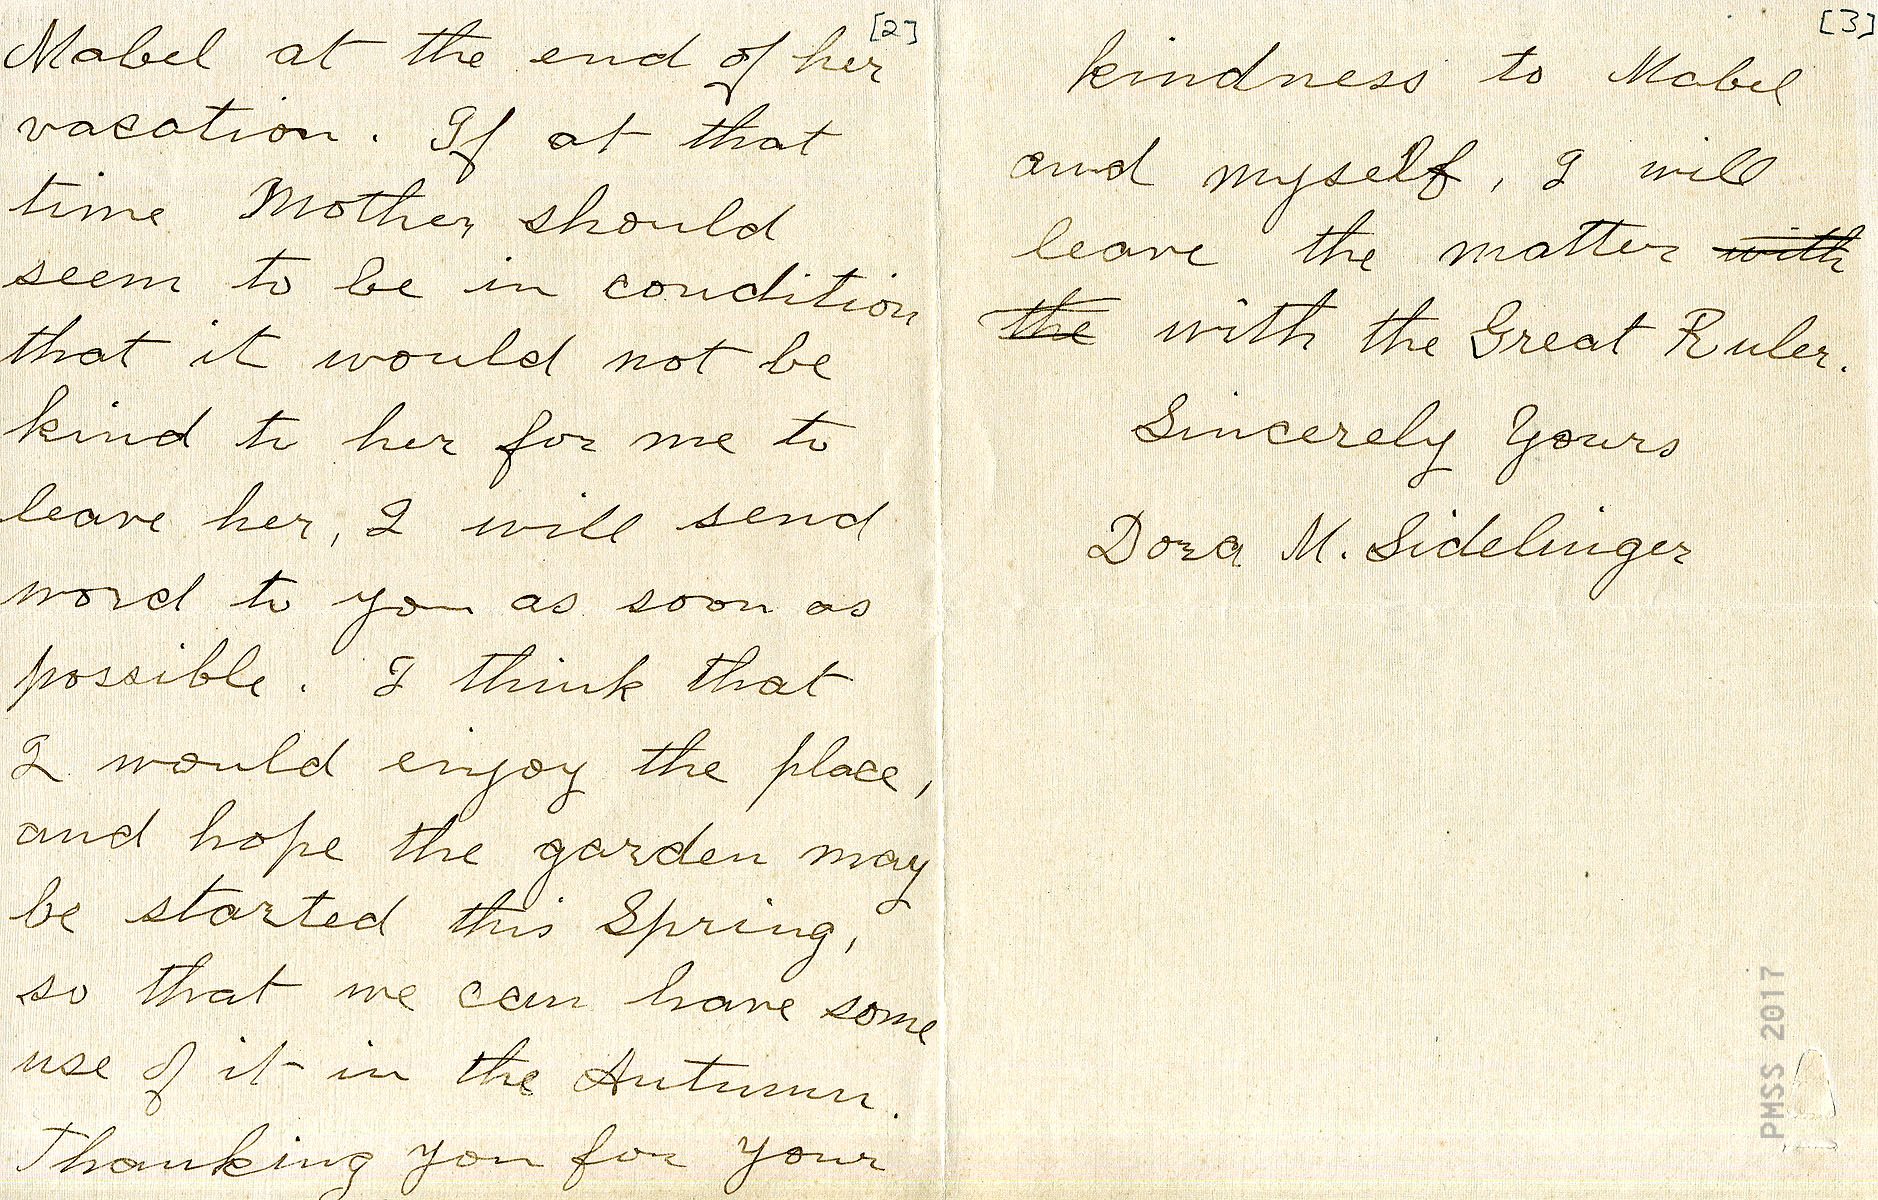 [2]
Mabel at the end of her
vacation. If at that
time Mother should
seem to be in condition
that it would not be
kind to her for me to
leave her, I will send
word to you as soon as
possible. I think that
I would enjoy the place,
and hope the garden may
be started this Spring,
so that we can have some
use of it in the Autumn.
Thanking you for your
[3]
kindness to Mabel
and myself, I will
leave the matter with
the with the Great Ruler.
Sincerely Yours
Dora M. Sidelinger
PMSS 2017